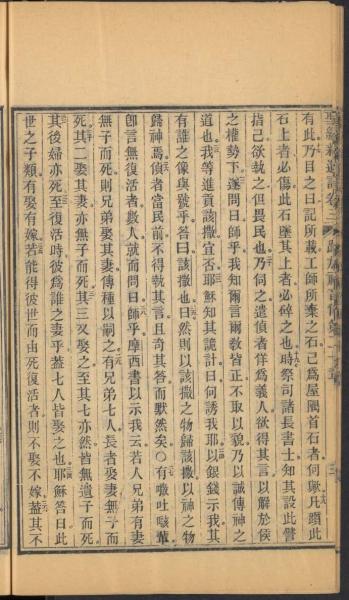 聖經新遺詔卷三
有此乃目之曰記所載工師所棄之石已爲屋隅首石者何歟凡蹟此
石上者必傷此石墜其上者必碎之也時祭司諸長書士知其設此譬
指己欲執之但畏民也乃伺之遣偵者佯爲義人欲得其言以解於侯
之權勢下遂問曰師乎我知爾言爾敎皆正不取以貌乃以誠傳神之
道也我等進貢該撒宜否耶穌知其詭計曰何誘我耶以銀錢示我其
有誰之像與號乎答曰該撒也曰然則以該撒之物歸該撒以神之物
歸神焉偵者當民前不得執其言且奇其答而默然矣○有吐輩
卽言無復活者數人就而問曰師乎摩西書以示我云若人兄弟有妻
無子而死則兄弟娶其妻傳種以嗣之有兄弟七人長者娶妻無子而
死其二娶其妻亦無子而死其三又娶之至其七亦然皆無遺子而死
其後婦亦死至復活時彼爲誰之妻乎蓋七人皆娶之也耶穌答曰此
世之子類有娶有嫁若能得彼世而由死復活者則不娶不嫁蓋其不